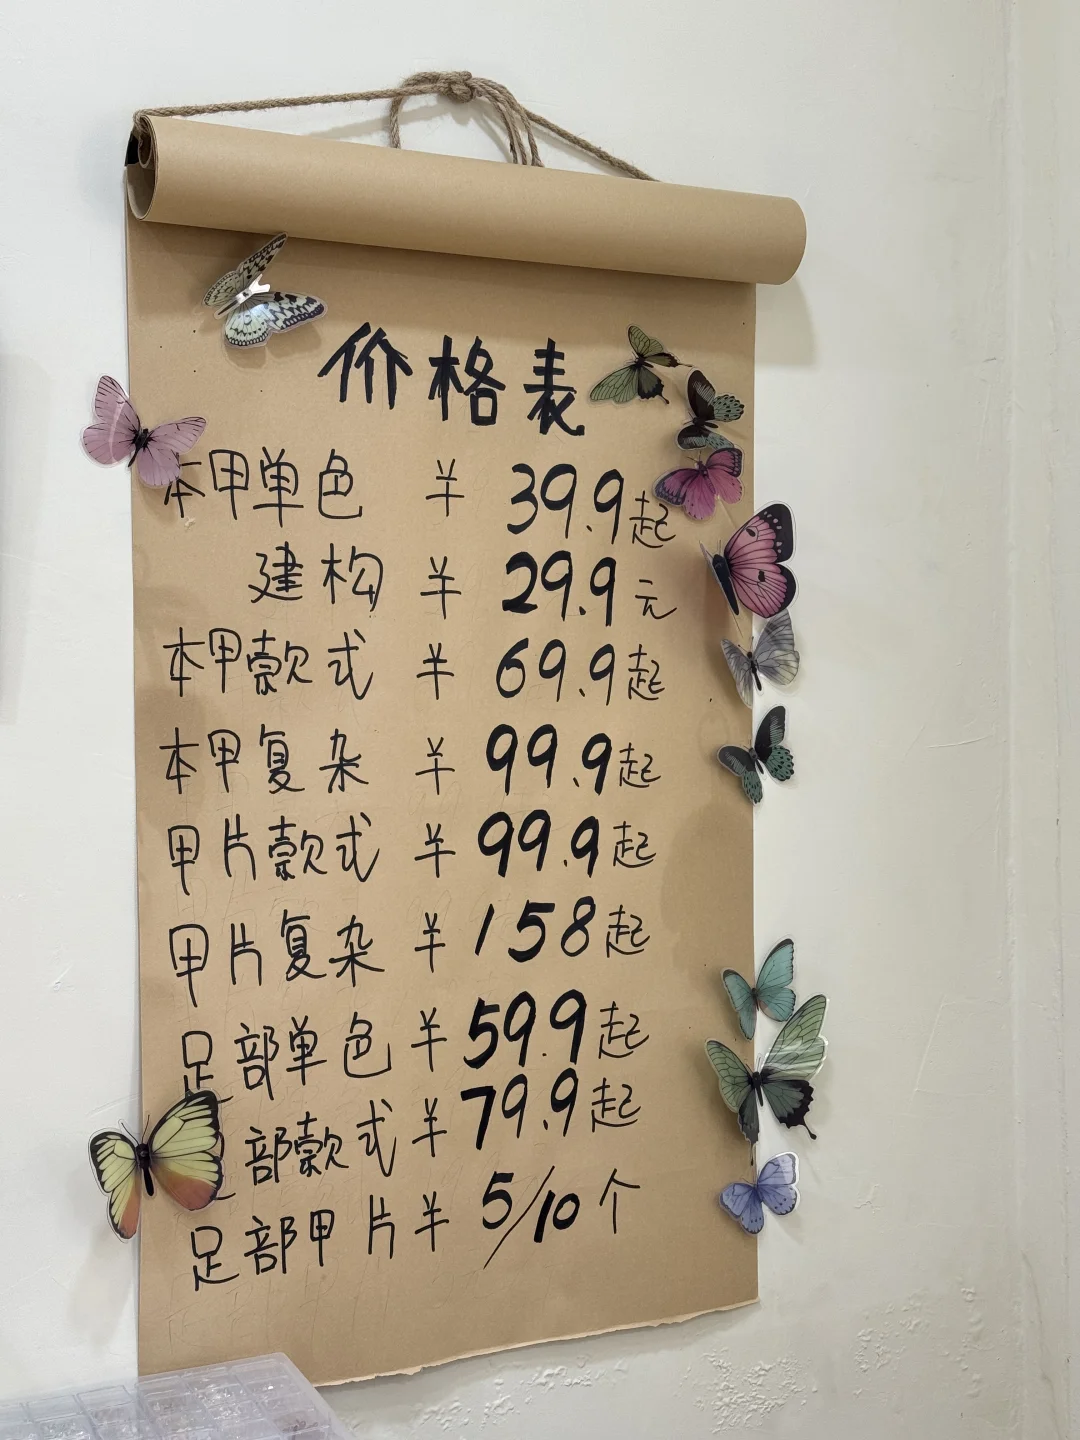 价格表
本甲单色 ¥ 39.9起
建构 ¥ 29.9元
本甲款式 ¥ 69.9起
本甲复杂 ¥ 99.9起
甲片款式 ¥ 99.9起
甲片复杂 ¥ 158起
足部单色 ¥ 59.9起
部款式 ¥ 79.9起
足部甲片 ¥ 5/10个